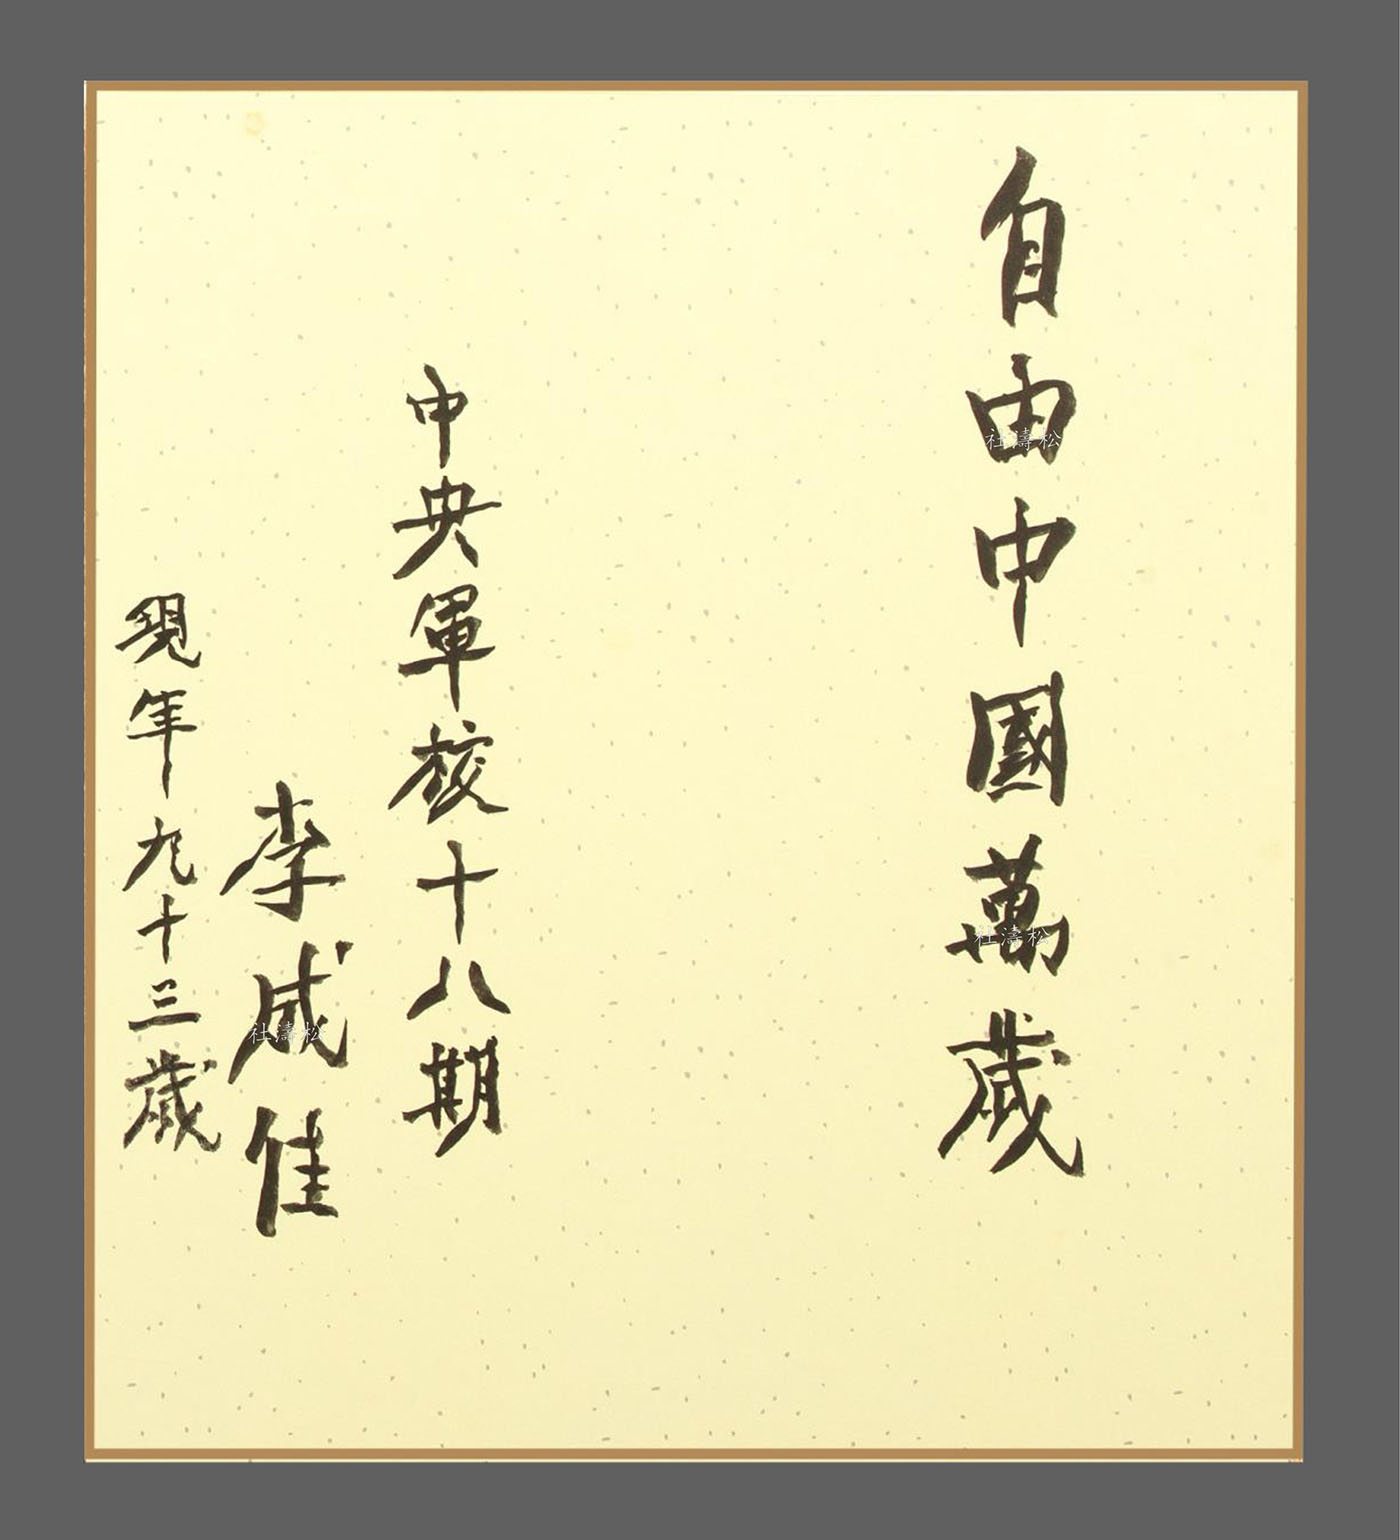 自由中國萬歲
中央軍校十八期
李威佳
現年九十三歲
松濤社
松濤社
松濤社